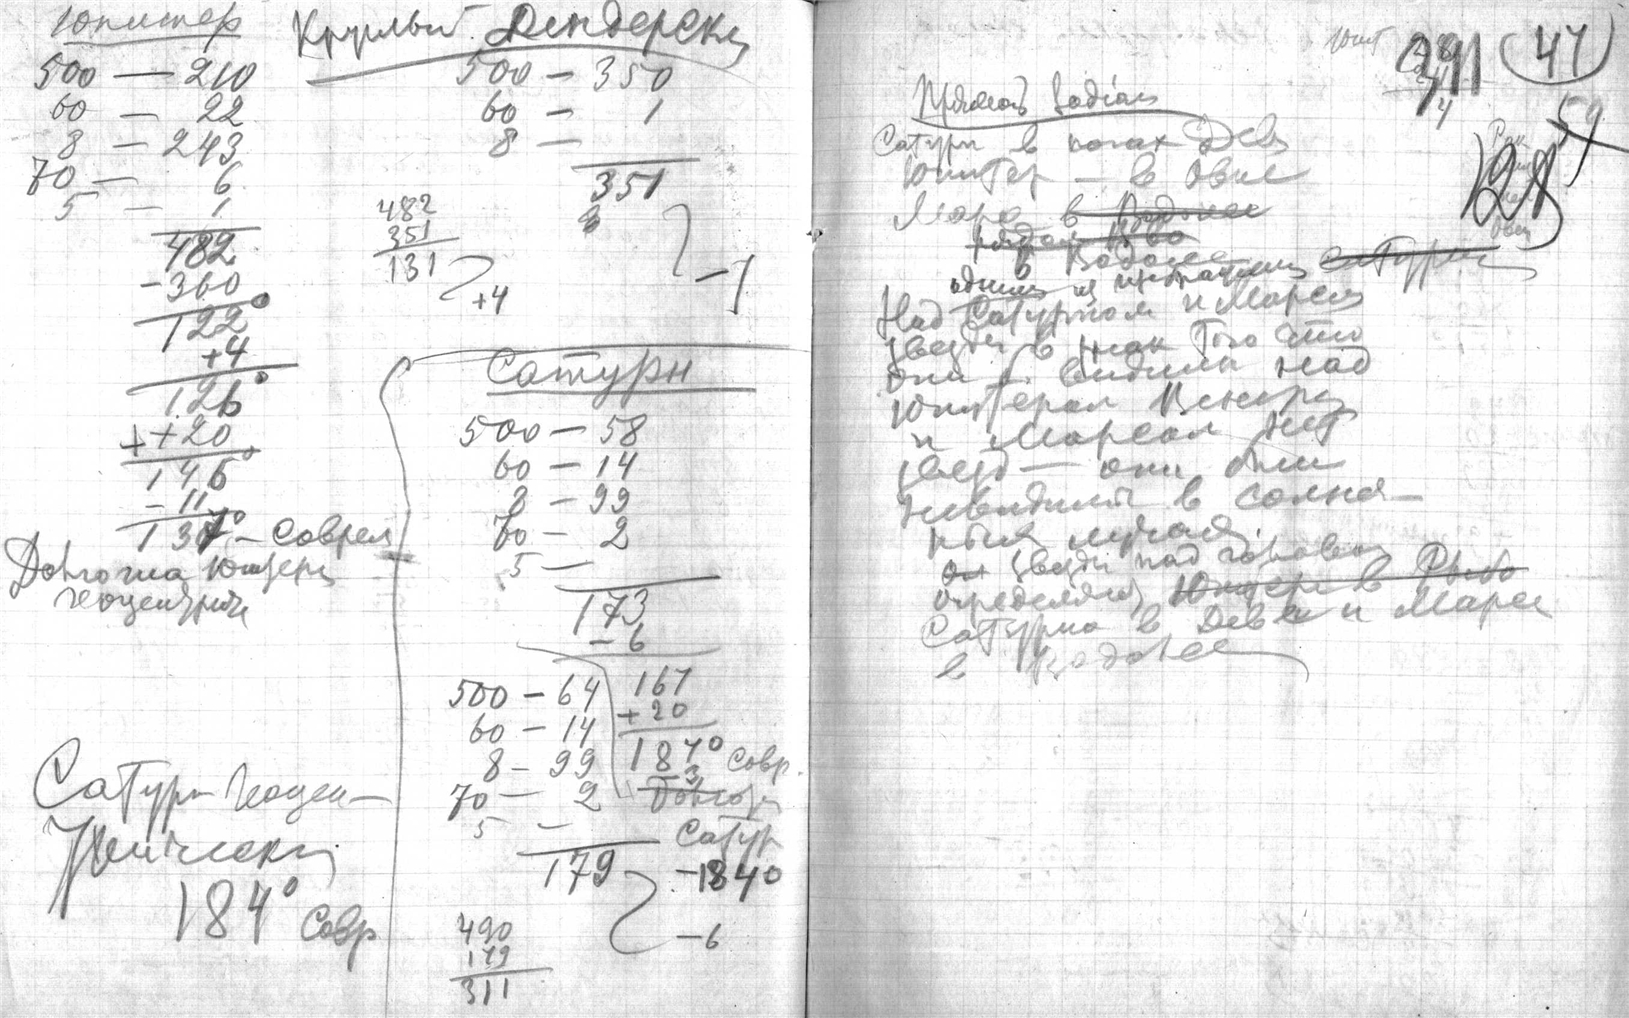 Юпитер
500 — 210
60 — 22
8 — 243
70 — 6
5 — 1
482
- 360
122°
+4
126°
+ +20
146°
- 11
137° - Соврем
Долгота Юпитера
геоцентрич
Круглый Дендерский
500 — 350
60 — 1
8 —
351
482
351
131
+4
-7
Сатурн
500 — 58
60 — 14
8 — 99
70 — 2
5 —
173
- 6
167
+ 20
187°
3 Совр.
Долгота
Сатур
- 184°
500 — 64
60 — 14
8 — 99
70 — 2
5 —
179
- 6
490
179
311
Сатурн Геоцен-
трический
184° Совр
Юпит
47
59
Zodiac
Сатурн в ногах Девы
Юпитер — в Овне
Марс в Водолее
рядом
в Водолее
одним из Сатурн
Над Сатурном и Марсом
звезды в знак того что
они б. видимы над
Юпитером Венерой
и Марсом нет
звезд — они были
невидимы в солнеч-
ных лучах.
звезды над головой
определяют Юпитера в Рыбо
Сатурна в Деве и Марса
в Водолее